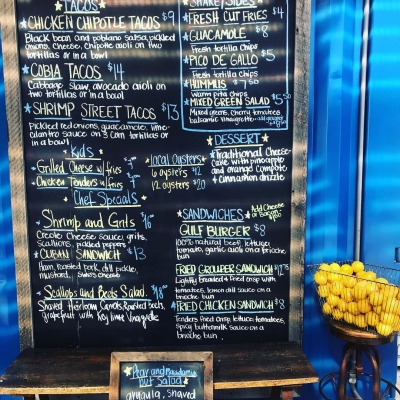 TACOS
CHICKEN CHIPOTLE TACOS $9
Black bean and poblano salsa, pickled
onions, cheese, chipotle aioli on two
tortillas or in a bowl
COBIA TACOS $14
Cabbage Slaw, avocado aioli on two
tortillas or in a bowl
SHRIMP STREET TACOS $13
Pickled red onions, guacamole,
cilantro sauce on 3 corn tortillas or
in a bowl
Kids
Grilled Cheese w/ fries
Chicken Tenders w/ fries
local oysters
6 oysters $12
12 oysters $20
Chef Specials
Shrimp and Grits $16
Creole Cheese sauce, grits,
scallions, pickled peppers
CUBAN SANDWICH $13
Ham, roasted pork, dill pickle,
mustard, swiss cheese
Scallops and Beets Salad
Shaved Heirloom Carrots, Roasted beets,
grapefruit with Key lime Vinaigrette
SIDES
FRESH CUT FRIES $4
GUACAMOLE $8
Fresh tortilla chips
PICO DE GALLO $5
Fresh tortilla chips
HUMMUS $7.50
Warm pita chips
MIXED GREEN SALAD
Mixed greens, cherry tomatoes
balsamic vinaigrette
DESSERT
Traditional Cheese-
cake with pineapple
and orange compote
+ cinnamon drizzle
SANDWICHES
Add Cheese
or Bacon
GULF BURGER $8
100% natural beef, lettuce,
tomato, garlic aioli on a brioche
bun
FRIED GROUPER SANDWICH
Lightly Breaded & Fried crisp with
tomatoes, lemon dill sauce on a
brioche bun
FRIED CHICKEN SANDWICH $8
Tenders fried crisp, lettuce, tomatoes,
Spicy buttermilk sauce on a
brioche bun
Pear and Macadamia
Nut Salad
arugula, shaved